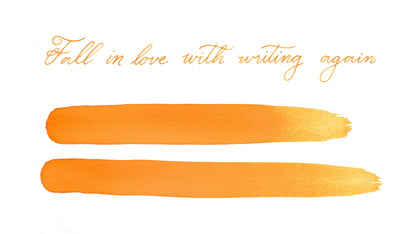 Fall in love with writing again